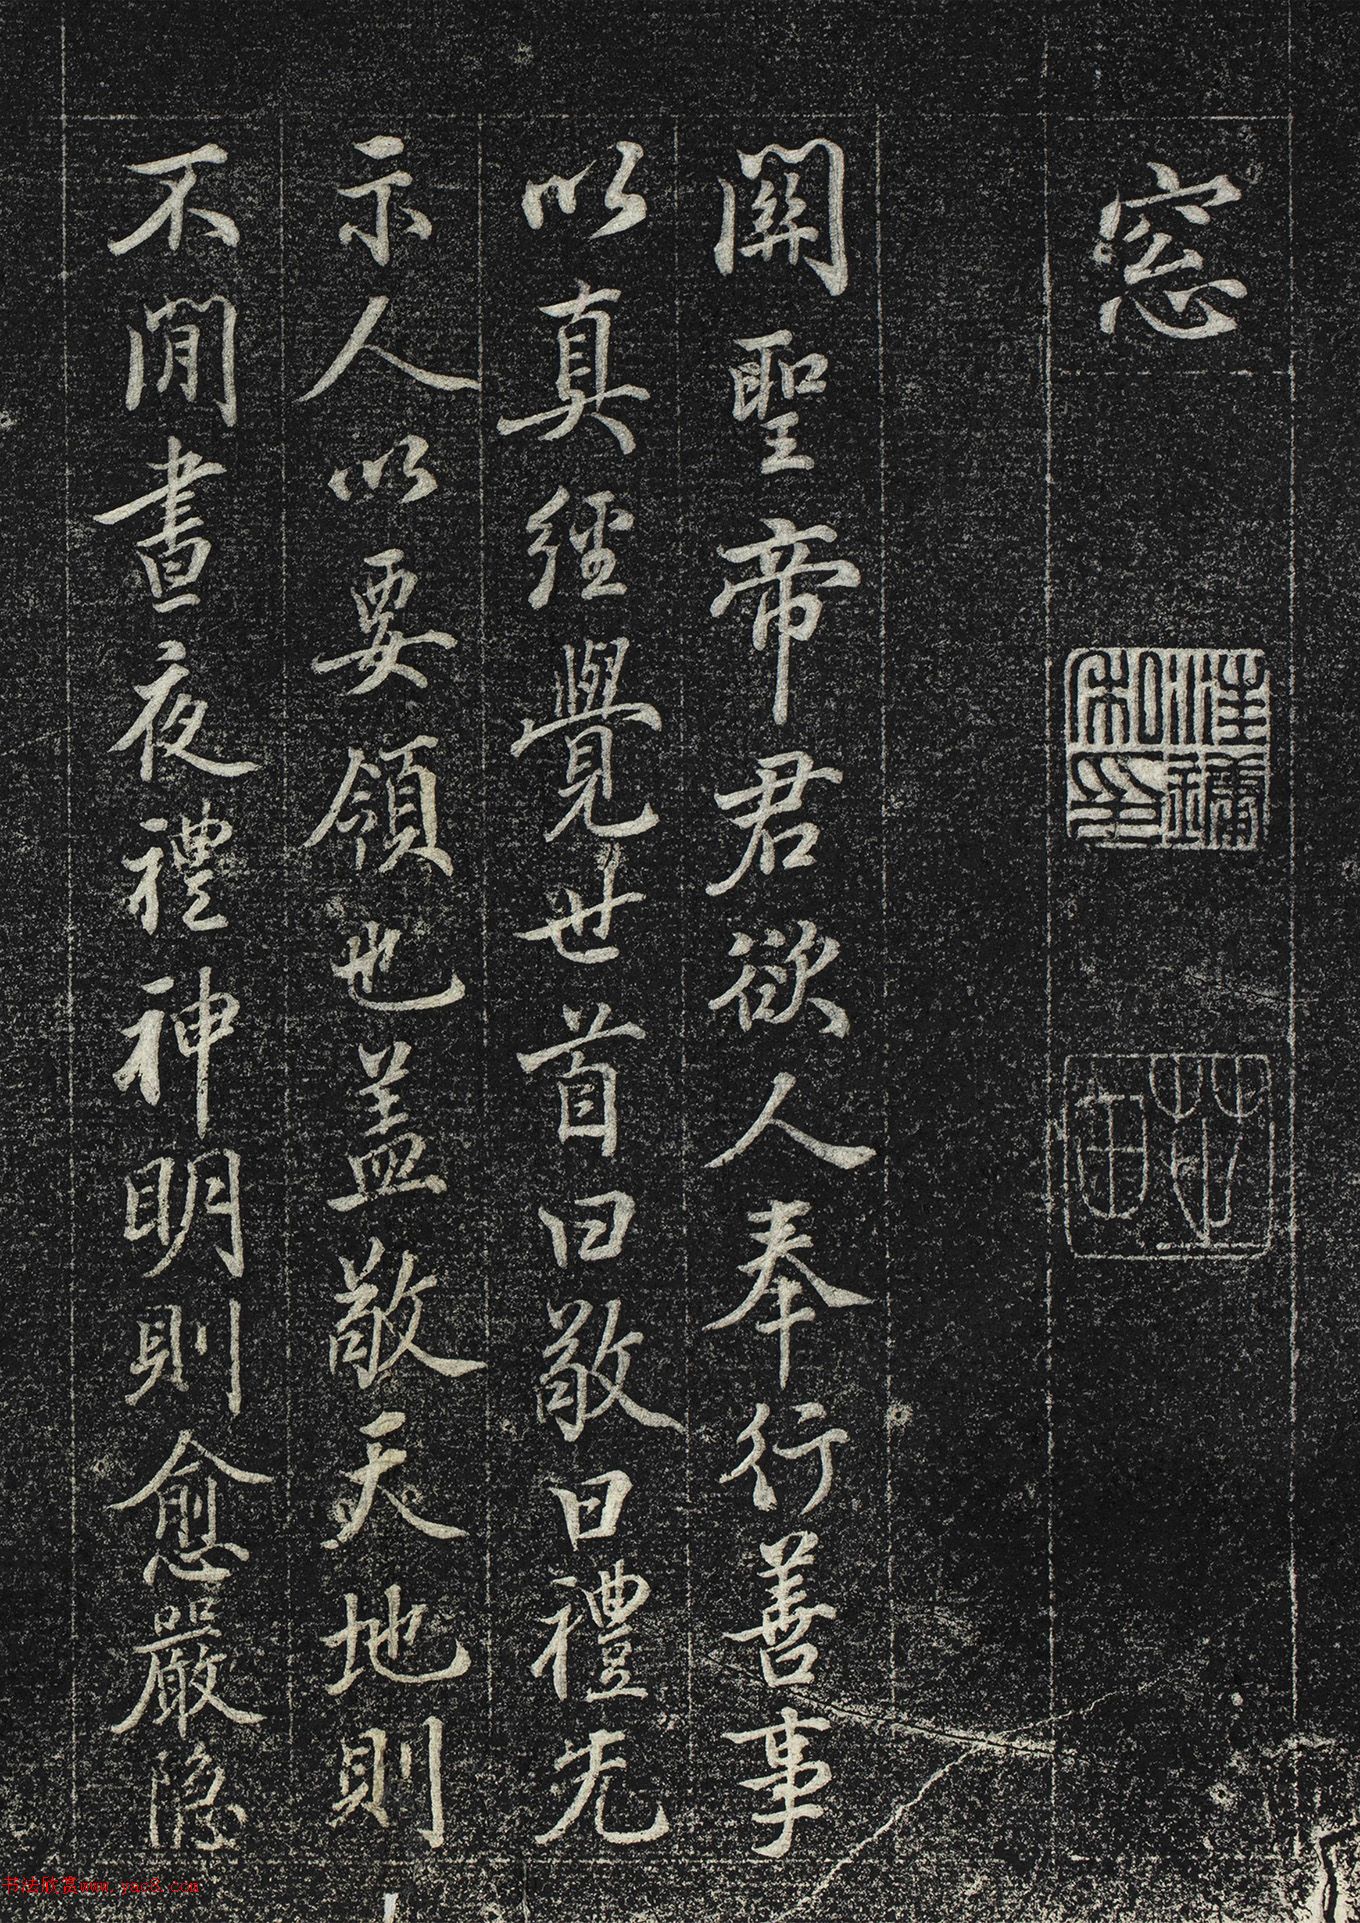 窓
關聖帝君欲人奉行善事
以真經覺世首曰敬曰禮无
示人以要領也盖敬天地則
不閒晝夜禮神明則愈嚴隐
书法欣赏www.yac8.com